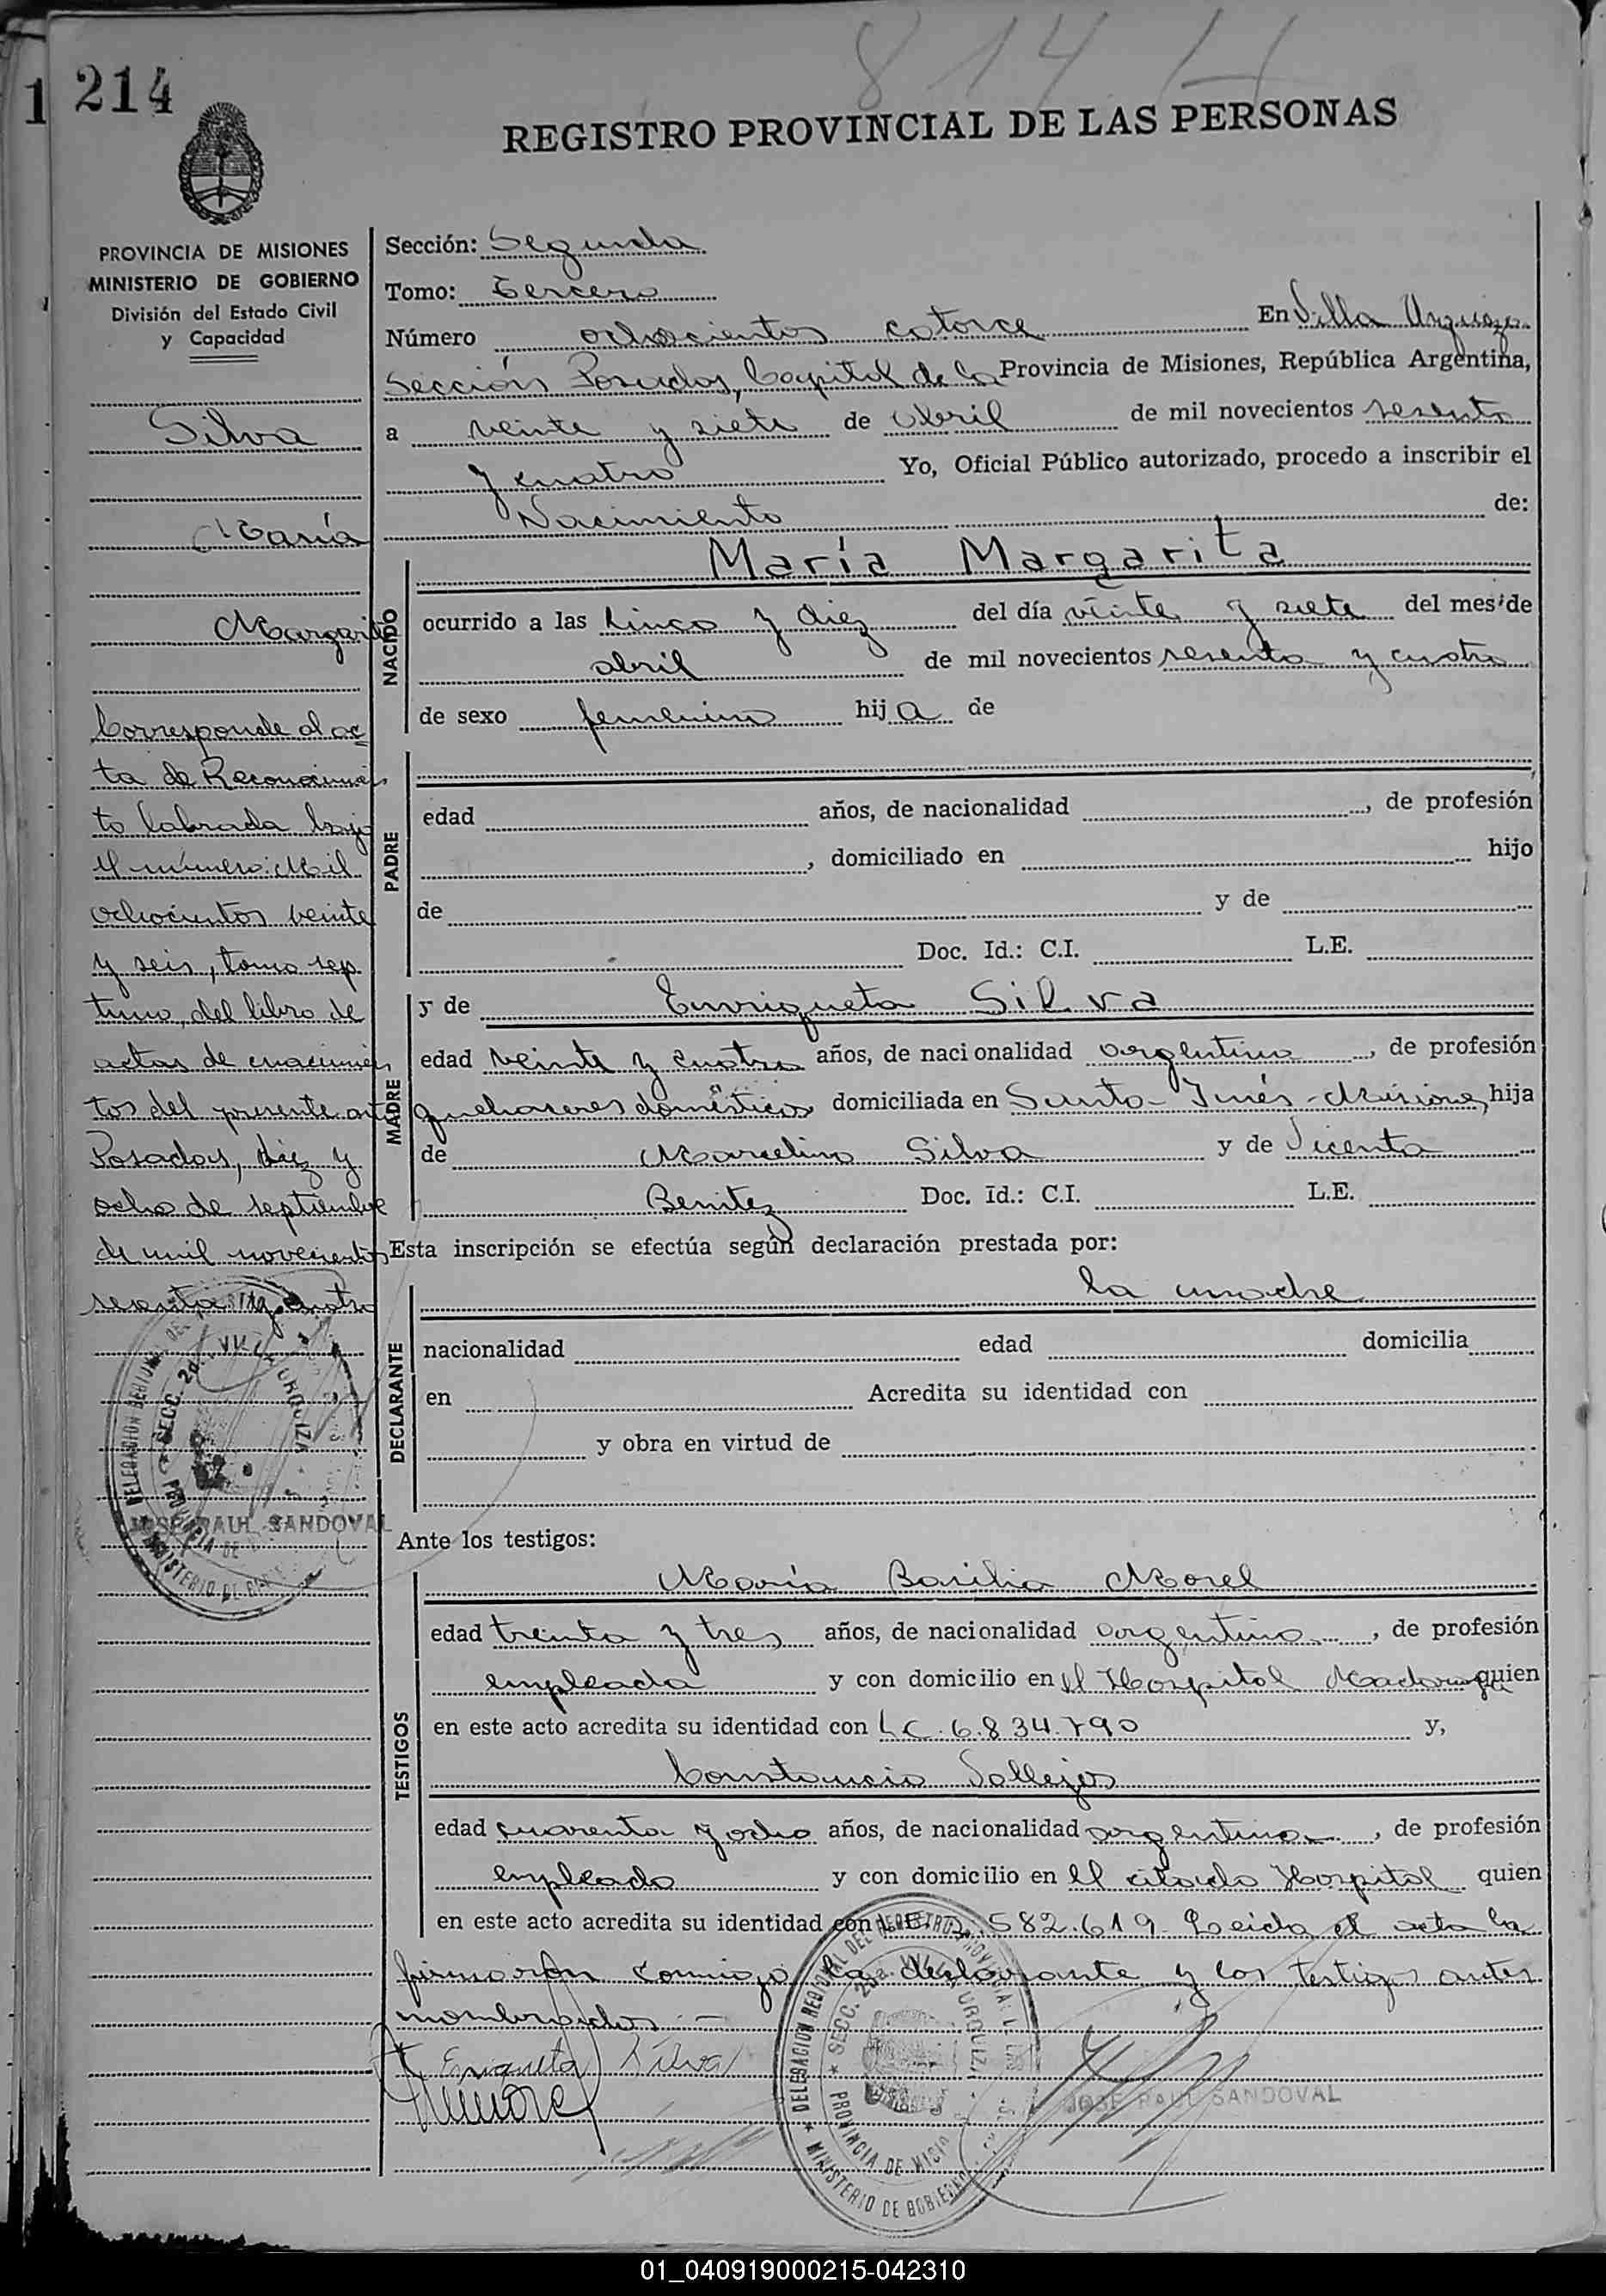 814 H
1 214
REGISTRO PROVINCIAL DE LAS PERSONAS
PROVINCIA DE MISIONES
MINISTERIO DE GOBIERNO
División del Estado Civil
y Capacidad
Silva
María
Margarita
Corresponde al ac
ta de Reconocimien
to labrada bajo
el número: Mil
ochocientos veinte
y seis, tomo sép
timo, del libro de
actas de nacimien
tos del presente año
Posadas, diez y
ocho de septiembre
de mil novecientos
sesenta y cuatro
JOSE RAUL SANDOVAL
Sección: Segunda
Tomo: Tercero
Número ochocientos catorce En Villa Urquiza
Sección Posadas, Capital de la Provincia de Misiones, República Argentina,
a veinte y siete de Abril de mil novecientos sesenta
y cuatro Yo, Oficial Público autorizado, procedo a inscribir el
Nacimiento de:
María Margarita
NACIDO
ocurrido a las cinco y diez del día veinte y siete del mes de
abril de mil novecientos sesenta y cuatro
de sexo femenino hija de
PADRE
edad años, de nacionalidad , de profesión
, domiciliado en hijo
de y de
Doc. Id.: C.I. L.E.
MADRE
y de Enriqueta Silva
edad veinte y cuatro años, de nacionalidad argentina , de profesión
quehaceres domésticos domiciliada en Santa Inés - Misiones, hija
de Marcelino Silva y de Vicenta
Benitez Doc. Id.: C.I. L.E.
Esta inscripción se efectúa según declaración prestada por:
la madre
DECLARANTE
nacionalidad edad domicilia
en Acredita su identidad con
y obra en virtud de
Ante los testigos:
TESTIGOS
María Basilia Morel
edad treinta y tres años, de nacionalidad argentina , de profesión
empleada y con domicilio en el Hospital Madariaga quien
en este acto acredita su identidad con L.C. 6.834.790 y,
Constancio Vallejos
edad cuarenta y ocho años, de nacionalidad argentina , de profesión
empleado y con domicilio en el citado Hospital quien
en este acto acredita su identidad con L.E. 582.619. Leída el acta la
firmaron conmigo la declarante y los testigos antes
nombrados.-
Enriqueta Silva
JOSE RAUL SANDOVAL
DELEGACION REGIONAL DEL REGISTRO PROVINCIAL
SECC. 2da. VILLA URQUIZA
PROVINCIA DE MISIONES
MINISTERIO DE GOBIERNO
01_040919000215-042310